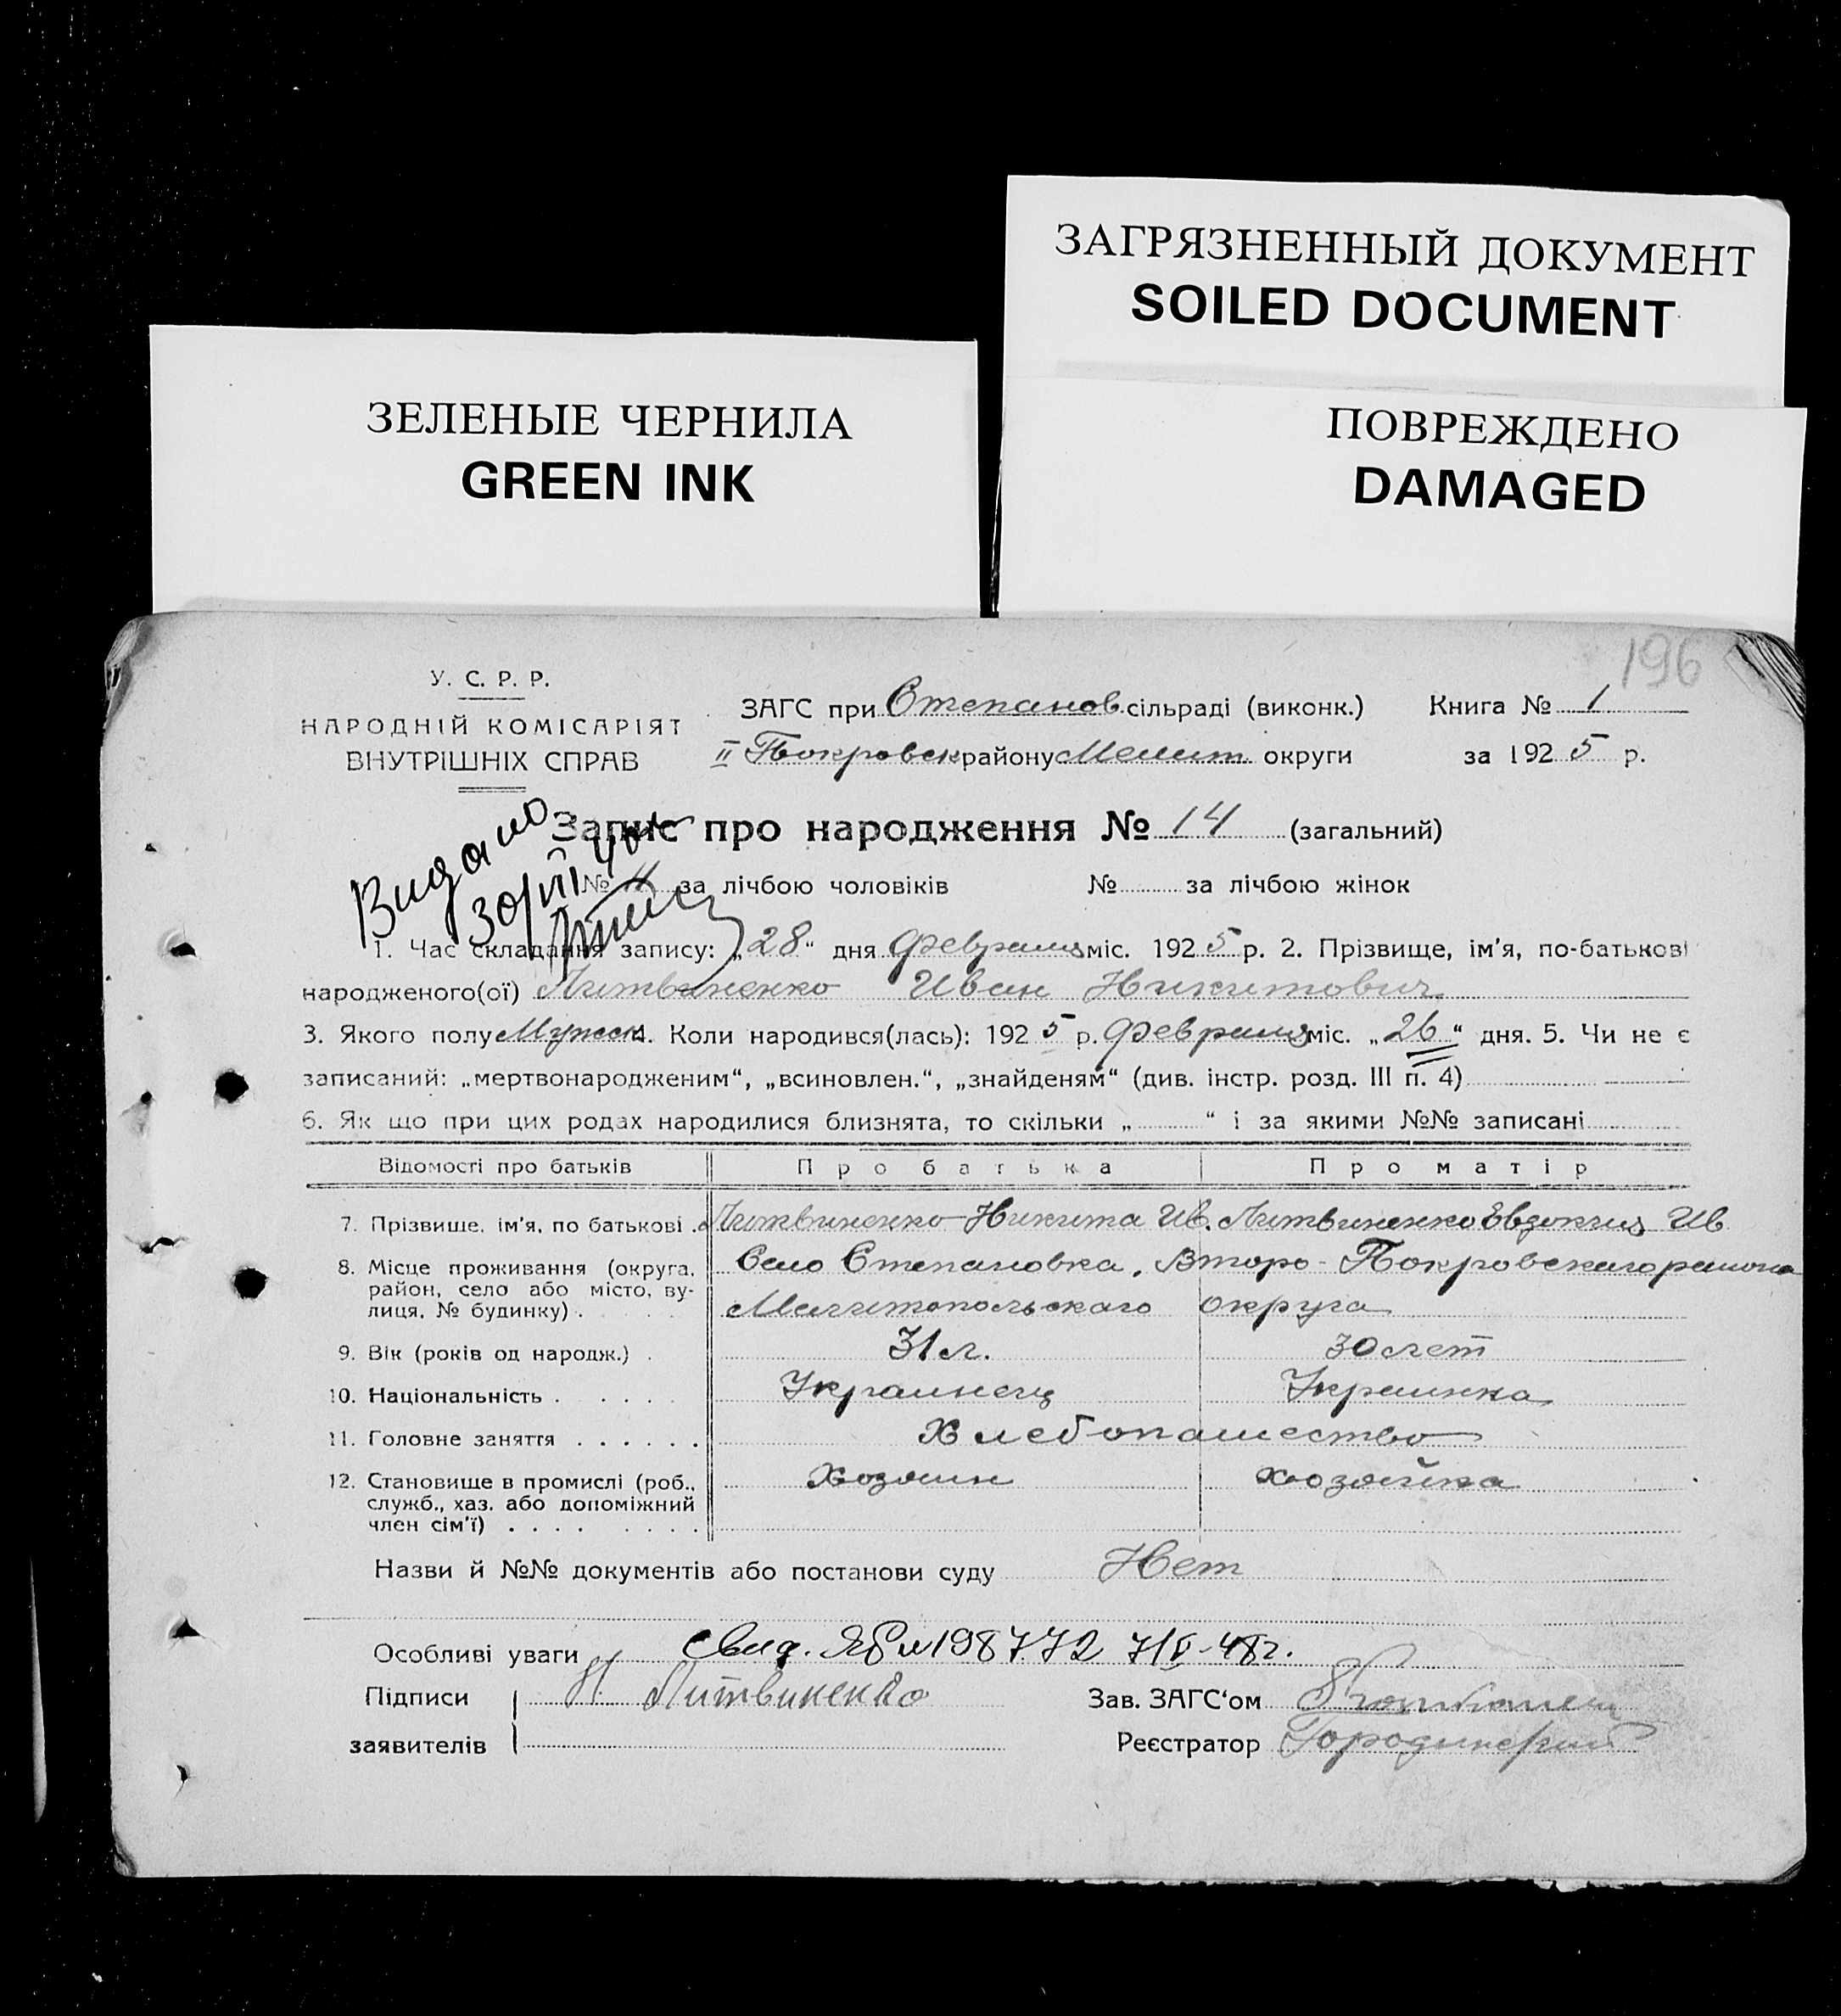 ЗАГРЯЗНЕННЫЙ ДОКУМЕНТ
SOILED DOCUMENT
ЗЕЛЕНЫЕ ЧЕРНИЛА
GREEN INK
ПОВРЕЖДЕНО
DAMAGED
196
У. С. Р. Р.
НАРОДНІЙ КОМІСАРІЯТ
ВНУТРІШНІХ СПРАВ
ЗАГС при Степанов. сільраді (виконк.) Книга № 1
II Покровск району Мелит. округи за 1925 р.
Запис про народження № 14 (загальний)
Видано
30/VII
№ 11 за лічбою чоловіків № за лічбою жінок
1. Час складання запису: „28“ дня февраля міс. 1925 р. 2. Прізвище, ім'я, по-батькові
народженого(ої) Литвиненко Иван Никитович
3. Якого полу Мужск. 4. Коли народився(лась): 1925 р. февраля міс. „26“ дня. 5. Чи не є
записаний: „мертвонародженим“, „всиновлен.“, „знайденям“ (див. інстр. розд. III п. 4)
6. Як що при цих родах народилися близнята, то скільки „ “ і за якими №№ записані
Відомості про батьків Про батька Про матір
7. Прізвище, ім'я, по батькові . Литвиненко Никита Ив. Литвиненко Евдокия Ив
8. Місце проживання (округа, район, село або місто, вулиця, № будинку) . Село Степановка, Второ-Покровскаго района
Мелитопольскаго округа
9. Вік (років од народж.) . 31 л. 30 лет
10. Національність . . . . . Украинец Украинка
11. Головне заняття . . . . . . Хлебопашество
12. Становище в промислі (роб., Хозяин хозяйка
служб., хаз. або допоміжний
член сім'ї) . . . . . . . .
Назви й №№ документів або постанови суду Нет
Особливі уваги Свид. ЯБ №198772 7/V-48г.
Підписи Н Литвиненко Зав. ЗАГС'ом
заявителів Реєстратор